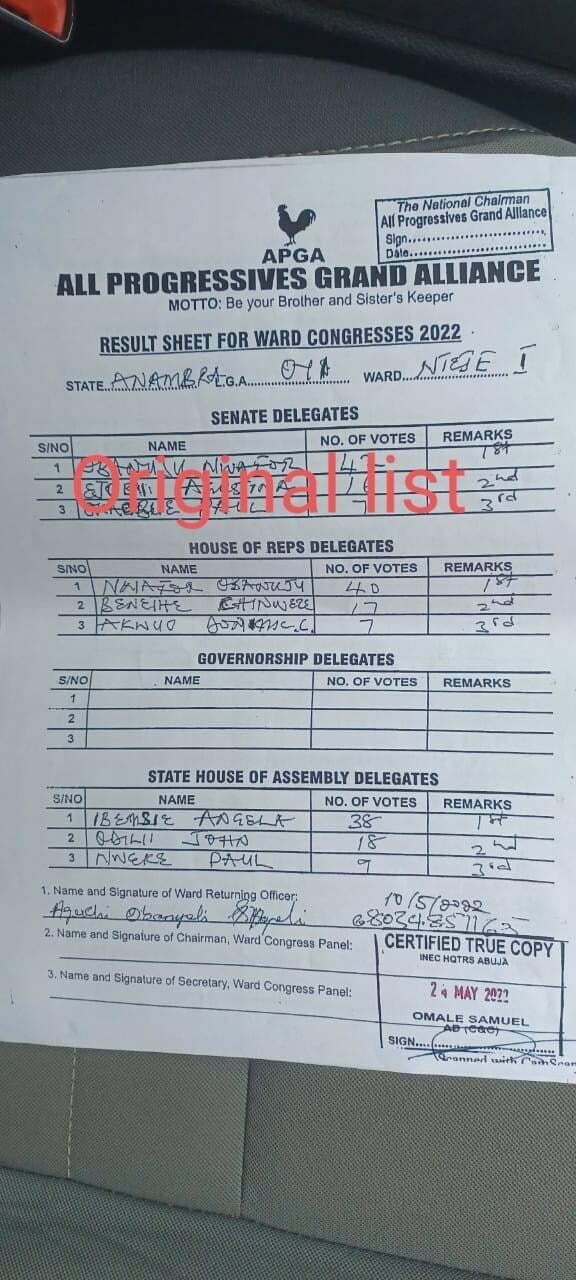 The National Chairman
All Progressives Grand Alliance
Sign
Date
APGA
ALL PROGRESSIVES GRAND ALLIANCE
MOTTO: Be your Brother and Sister's Keeper
RESULT SHEET FOR WARD CONGRESSES 2022
STATE ANAMBRA L.G.A. OYI WARD NTEJE I
SENATE DELEGATES
S/NO NAME NO. OF VOTES REMARKS
1 NWAFOR 1st
2 2nd
3 PAUL 7 3rd
Original list
HOUSE OF REPS DELEGATES
S/NO NAME NO. OF VOTES REMARKS
1 NWAFOR 40 1st
2 CHINWEZE 17 2nd
3 7 3rd
GOVERNORSHIP DELEGATES
S/NO NAME NO. OF VOTES REMARKS
1
2
3
STATE HOUSE OF ASSEMBLY DELEGATES
S/NO NAME NO. OF VOTES REMARKS
1 ANGELA 38 1st
2 JOHN 18 2nd
3 NWEKE PAUL 9 3rd
1. Name and Signature of Ward Returning Officer: 10/5/2022
2. Name and Signature of Chairman, Ward Congress Panel:
3. Name and Signature of Secretary, Ward Congress Panel:
CERTIFIED TRUE COPY
INEC HQTRS ABUJA
24 MAY 2022
OMALE SAMUEL
AD (C&C)
SIGN
Scanned with CamScan